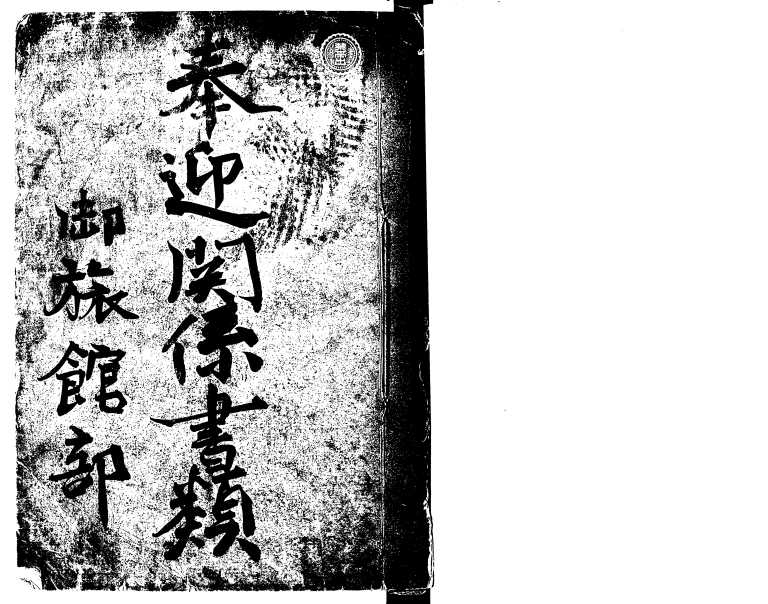 奉迎関係書類
御旅館部